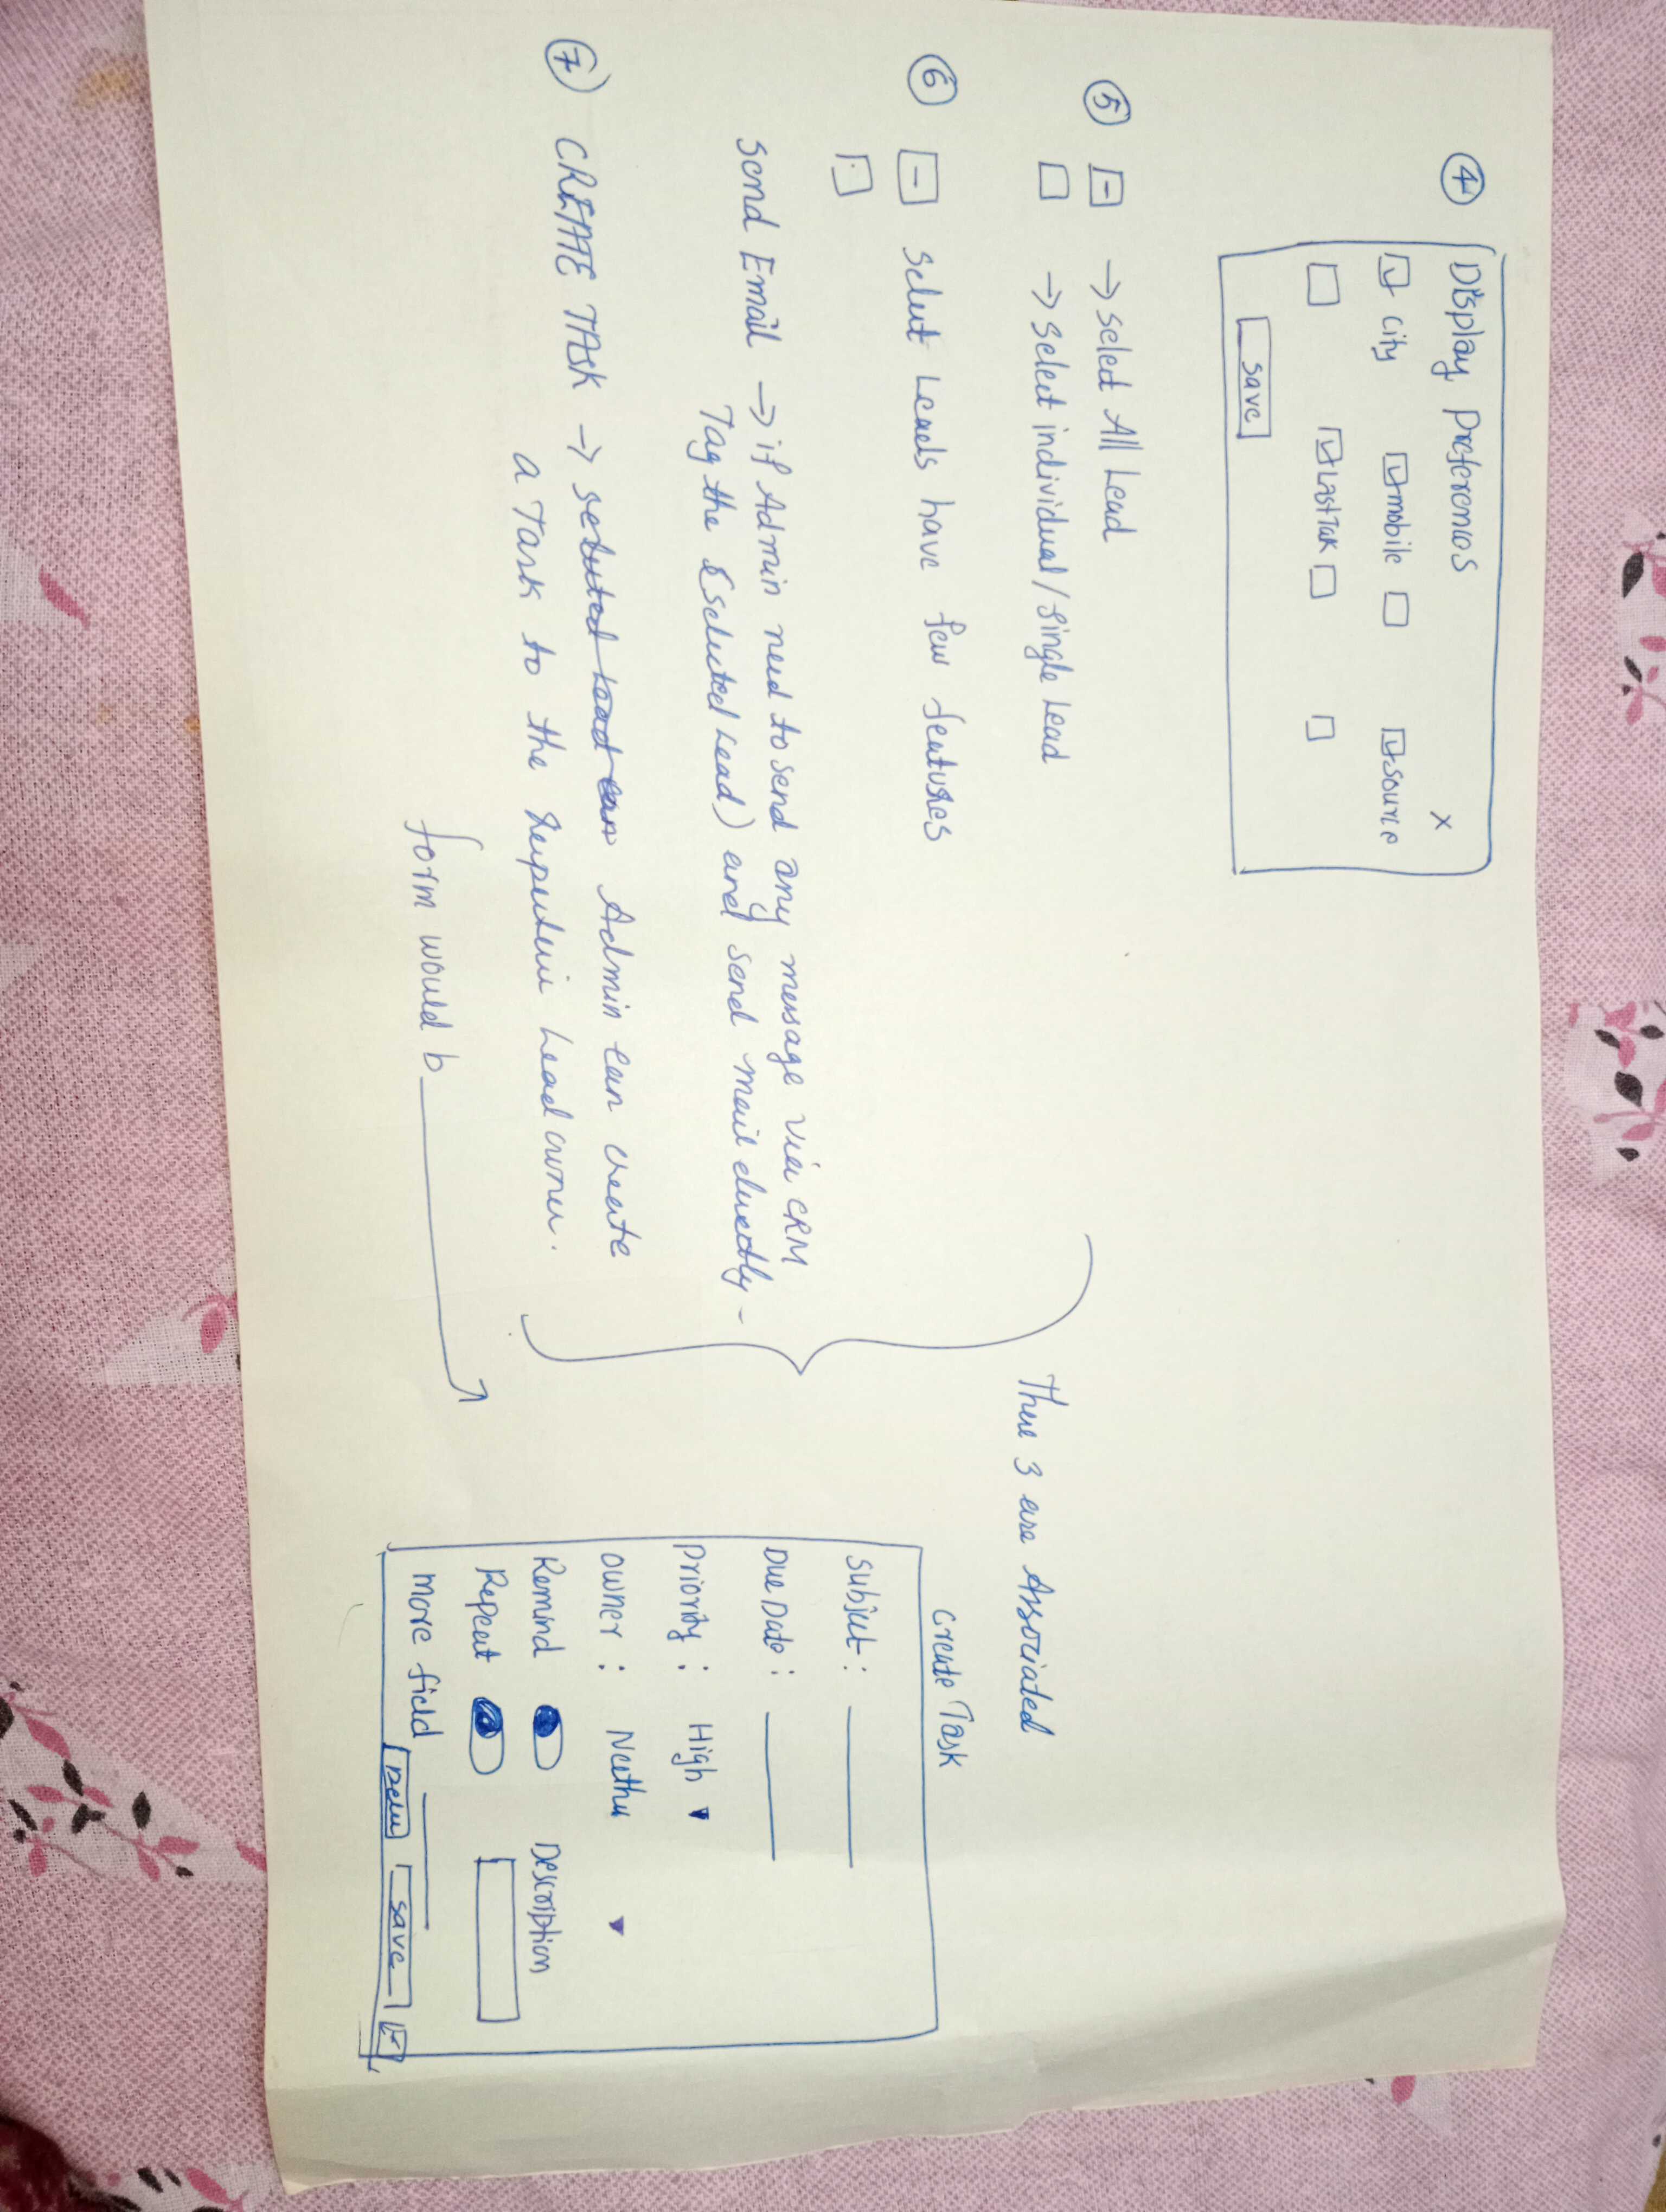 ④ Display Preferences X
☑ City ☑ mobile ☐ ☑ source
☐ ☑ LastTak ☐ ☐
Save
⑤ ⊟ → select All Lead
☐ → select individual / Single Lead
There 3 are Associated
⑥ ⊟ Select Leads have few features
Send Email → if Admin need to send any message via CRM
Tag the (selected Lead) and send mail directly -
⑦ CREATE TASK → selected Lead can Admin can create
a Task to the Lead owner.
form would b
Create Task
Subject :
Due Date :
Priority : High ▾
Owner : Neethu ▾
Remind Description
Repeat
more field
new save